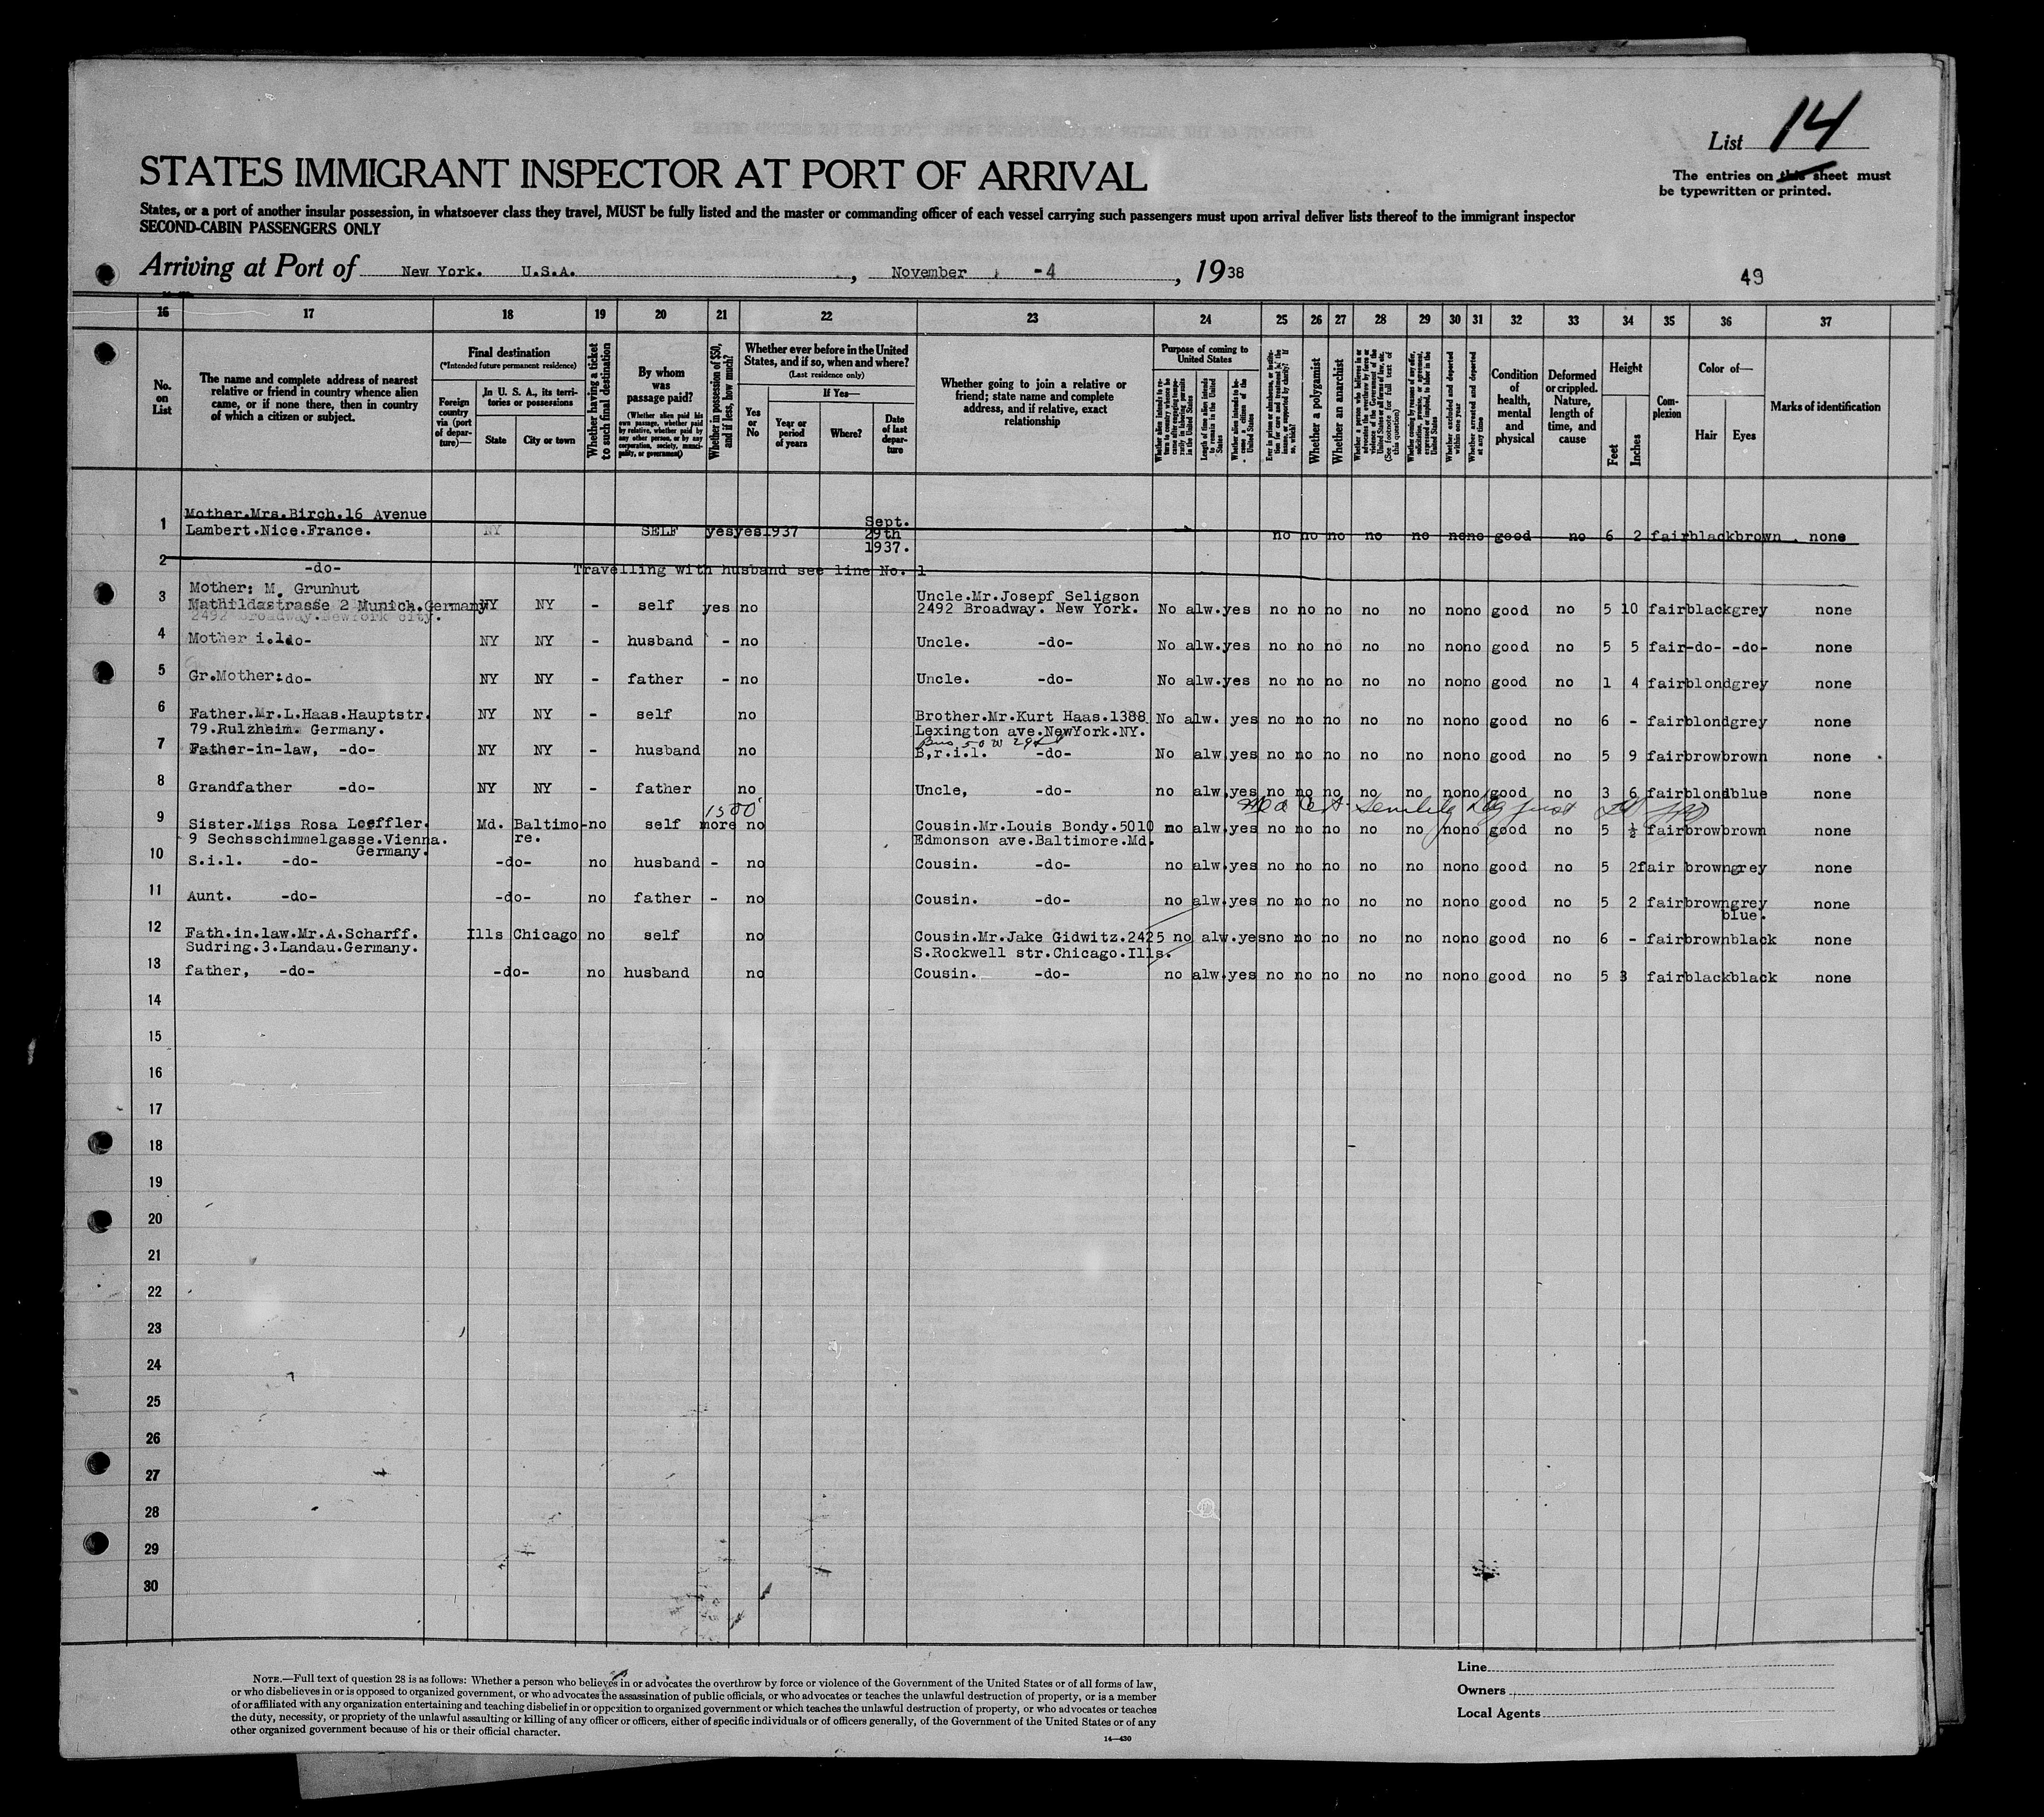 List 14
The entries on this sheet must
be typewritten or printed.
STATES IMMIGRANT INSPECTOR AT PORT OF ARRIVAL
States, or a port of another insular possession, in whatsoever class they travel, MUST be fully listed and the master or commanding officer of each vessel carrying such passengers must upon arrival deliver lists thereof to the immigrant inspector
SECOND-CABIN PASSENGERS ONLY
Arriving at Port of New York. U.S.A. , November -4 , 1938
49
16 17 18 19 20 21 22 23 24 25 26 27 28 29 30 31 32 33 34 35 36 37
No. on List
The name and complete address of nearest
relative or friend in country whence alien
came, or if none there, then in country
of which a citizen or subject.
Final destination
(*Intended future permanent residence)
Foreign country via (port of departure)—
In U. S. A., its territories or possessions
State
City or town
Whether having a ticket to such final destination
By whom was passage paid?
(Whether alien paid his own passage, whether paid by relative, whether paid by any other person, or by any corporation, society, municipality, or government)
Whether in possession of $50, and if less, how much?
Whether ever before in the United States, and if so, when and where?
(Last residence only)
Yes or No
If Yes—
Year or period of years
Where?
Date of last departure
Whether going to join a relative or
friend; state name and complete
address, and if relative, exact
relationship
Purpose of coming to United States
Whether alien intends to return to country whence he came after engaging temporarily in laboring pursuits in the United States
Length of time alien intends to remain in the United States
Whether alien intends to become a citizen of the United States
Whether a polygamist
Whether an anarchist
(See footnote for full text of this question)
Whether excluded and deported within one year
Whether arrested and deported at any time
Condition of health, mental and physical
Deformed or crippled. Nature, length of time, and cause
Height
Feet
Inches
Complexion
Color of—
Hair
Eyes
Marks of identification
1 Mother.Mrs.Birch.16 Avenue
Lambert.Nice.France. NY SELF yes yes 1937 Sept. 29th 1937. no no no no no no no good no 6 2 fair black brown none
2 -do- Travelling with husband see line No. 1
3 Mother: M. Grunhut
Mathildastrasse 2 Munich.Germany NY NY - self yes no Uncle.Mr.Josepf Seligson
2492 Broadway. New York. No alw. yes no no no no no no no good no 5 10 fair black grey none
2492 Broadway.NewYork city.
4 Mother i.l. -do- NY NY - husband - no Uncle. -do- No alw. yes no no no no no no no good no 5 5 fair -do- -do- none
5 Gr.Mother: do- NY NY - father - no Uncle. -do- No alw. yes no no no no no no no good no 1 4 fair blond grey none
6 Father.Mr.L.Haas.Hauptstr.
79.Rulzheim. Germany. NY NY - self no Brother.Mr.Kurt Haas.1388
Lexington ave.NewYork.NY. No alw. yes no no no no no no no good no 6 - fair blond grey none
7 Father-in-law, -do- NY NY - husband no B,r.i.l. -do- No alw. yes no no no no no no no good no 5 9 fair brow brown none
8 Grandfather -do- NY NY - father no Uncle, -do- no alw. yes no no no no no no no good no 3 6 fair blond blue none
1500
9 Sister.Miss Rosa Loeffler.
9 Sechsschimmelgasse.Vienna.
Germany. Md. Baltimo-re. no self more no Cousin.Mr.Louis Bondy.5010
Edmonson ave.Baltimore.Md. no alw. yes no no no no no no no good no 5 ½ fair brow brown none
10 S.i.l. -do- -do- no husband - no Cousin. -do- no alw. yes no no no no no no no good no 5 2 fair brown grey none
11 Aunt. -do- -do- no father - no Cousin. -do- no alw. yes no no no no no no no good no 5 2 fair brown grey none
blue.
12 Fath.in.law.Mr.A.Scharff.
Sudring.3.Landau.Germany. Ills Chicago no self no Cousin.Mr.Jake Gidwitz.2425
S.Rockwell str.Chicago.Ills. no alw. yes no no no no no no no good no 6 - fair brown black none
13 father, -do- -do- no husband no Cousin. -do- no alw. yes no no no no no no no good no 5 3 fair black black none
14
15
16
17
18
19
20
21
22
23
24
25
26
27
28
29
30
NOTE.—Full text of question 28 is as follows: Whether a person who believes in or advocates the overthrow by force or violence of the Government of the United States or of all forms of law,
or who disbelieves in or is opposed to organized government, or who advocates the assassination of public officials, or who advocates or teaches the unlawful destruction of property, or is a member
of or affiliated with any organization entertaining and teaching disbelief in or opposition to organized government or which teaches the unlawful destruction of property, or who advocates or teaches
the duty, necessity, or propriety of the unlawful assaulting or killing of any officer or officers, either of specific individuals or of officers generally, of the Government of the United States or of any
other organized government because of his or their official character.
14—430
Line
Owners
Local Agents